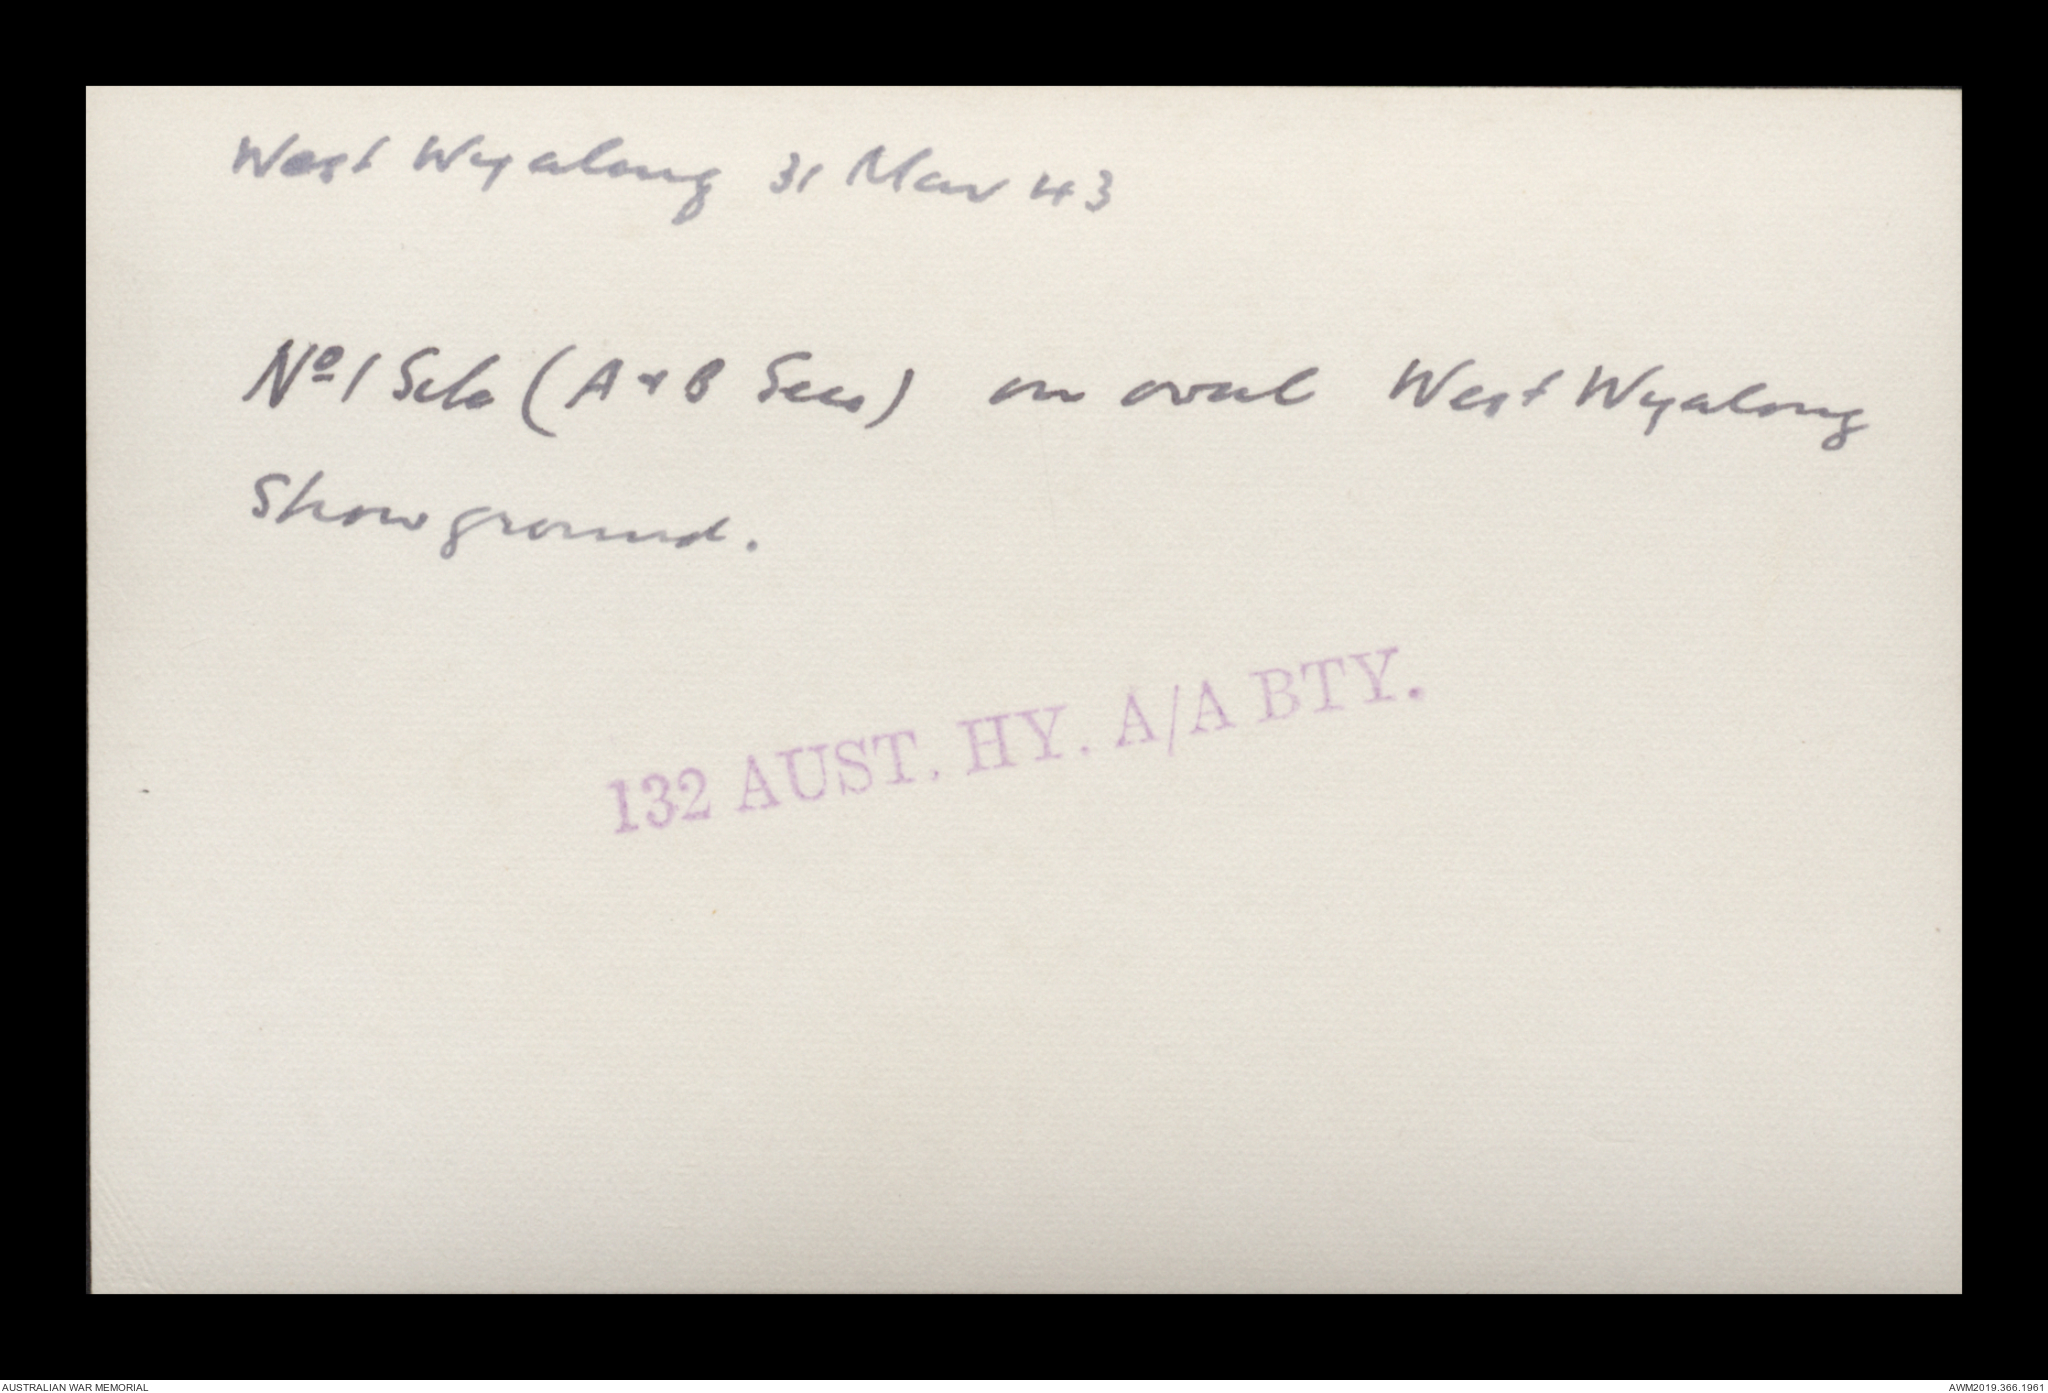 West Wyalong 31 Mar 43
Nº 1 (A + B Secs) on oval West Wyalong
Showground.
132 AUST. HY. A/A BTY.
AUSTRALIAN WAR MEMORIAL
AWM2019.366.1961